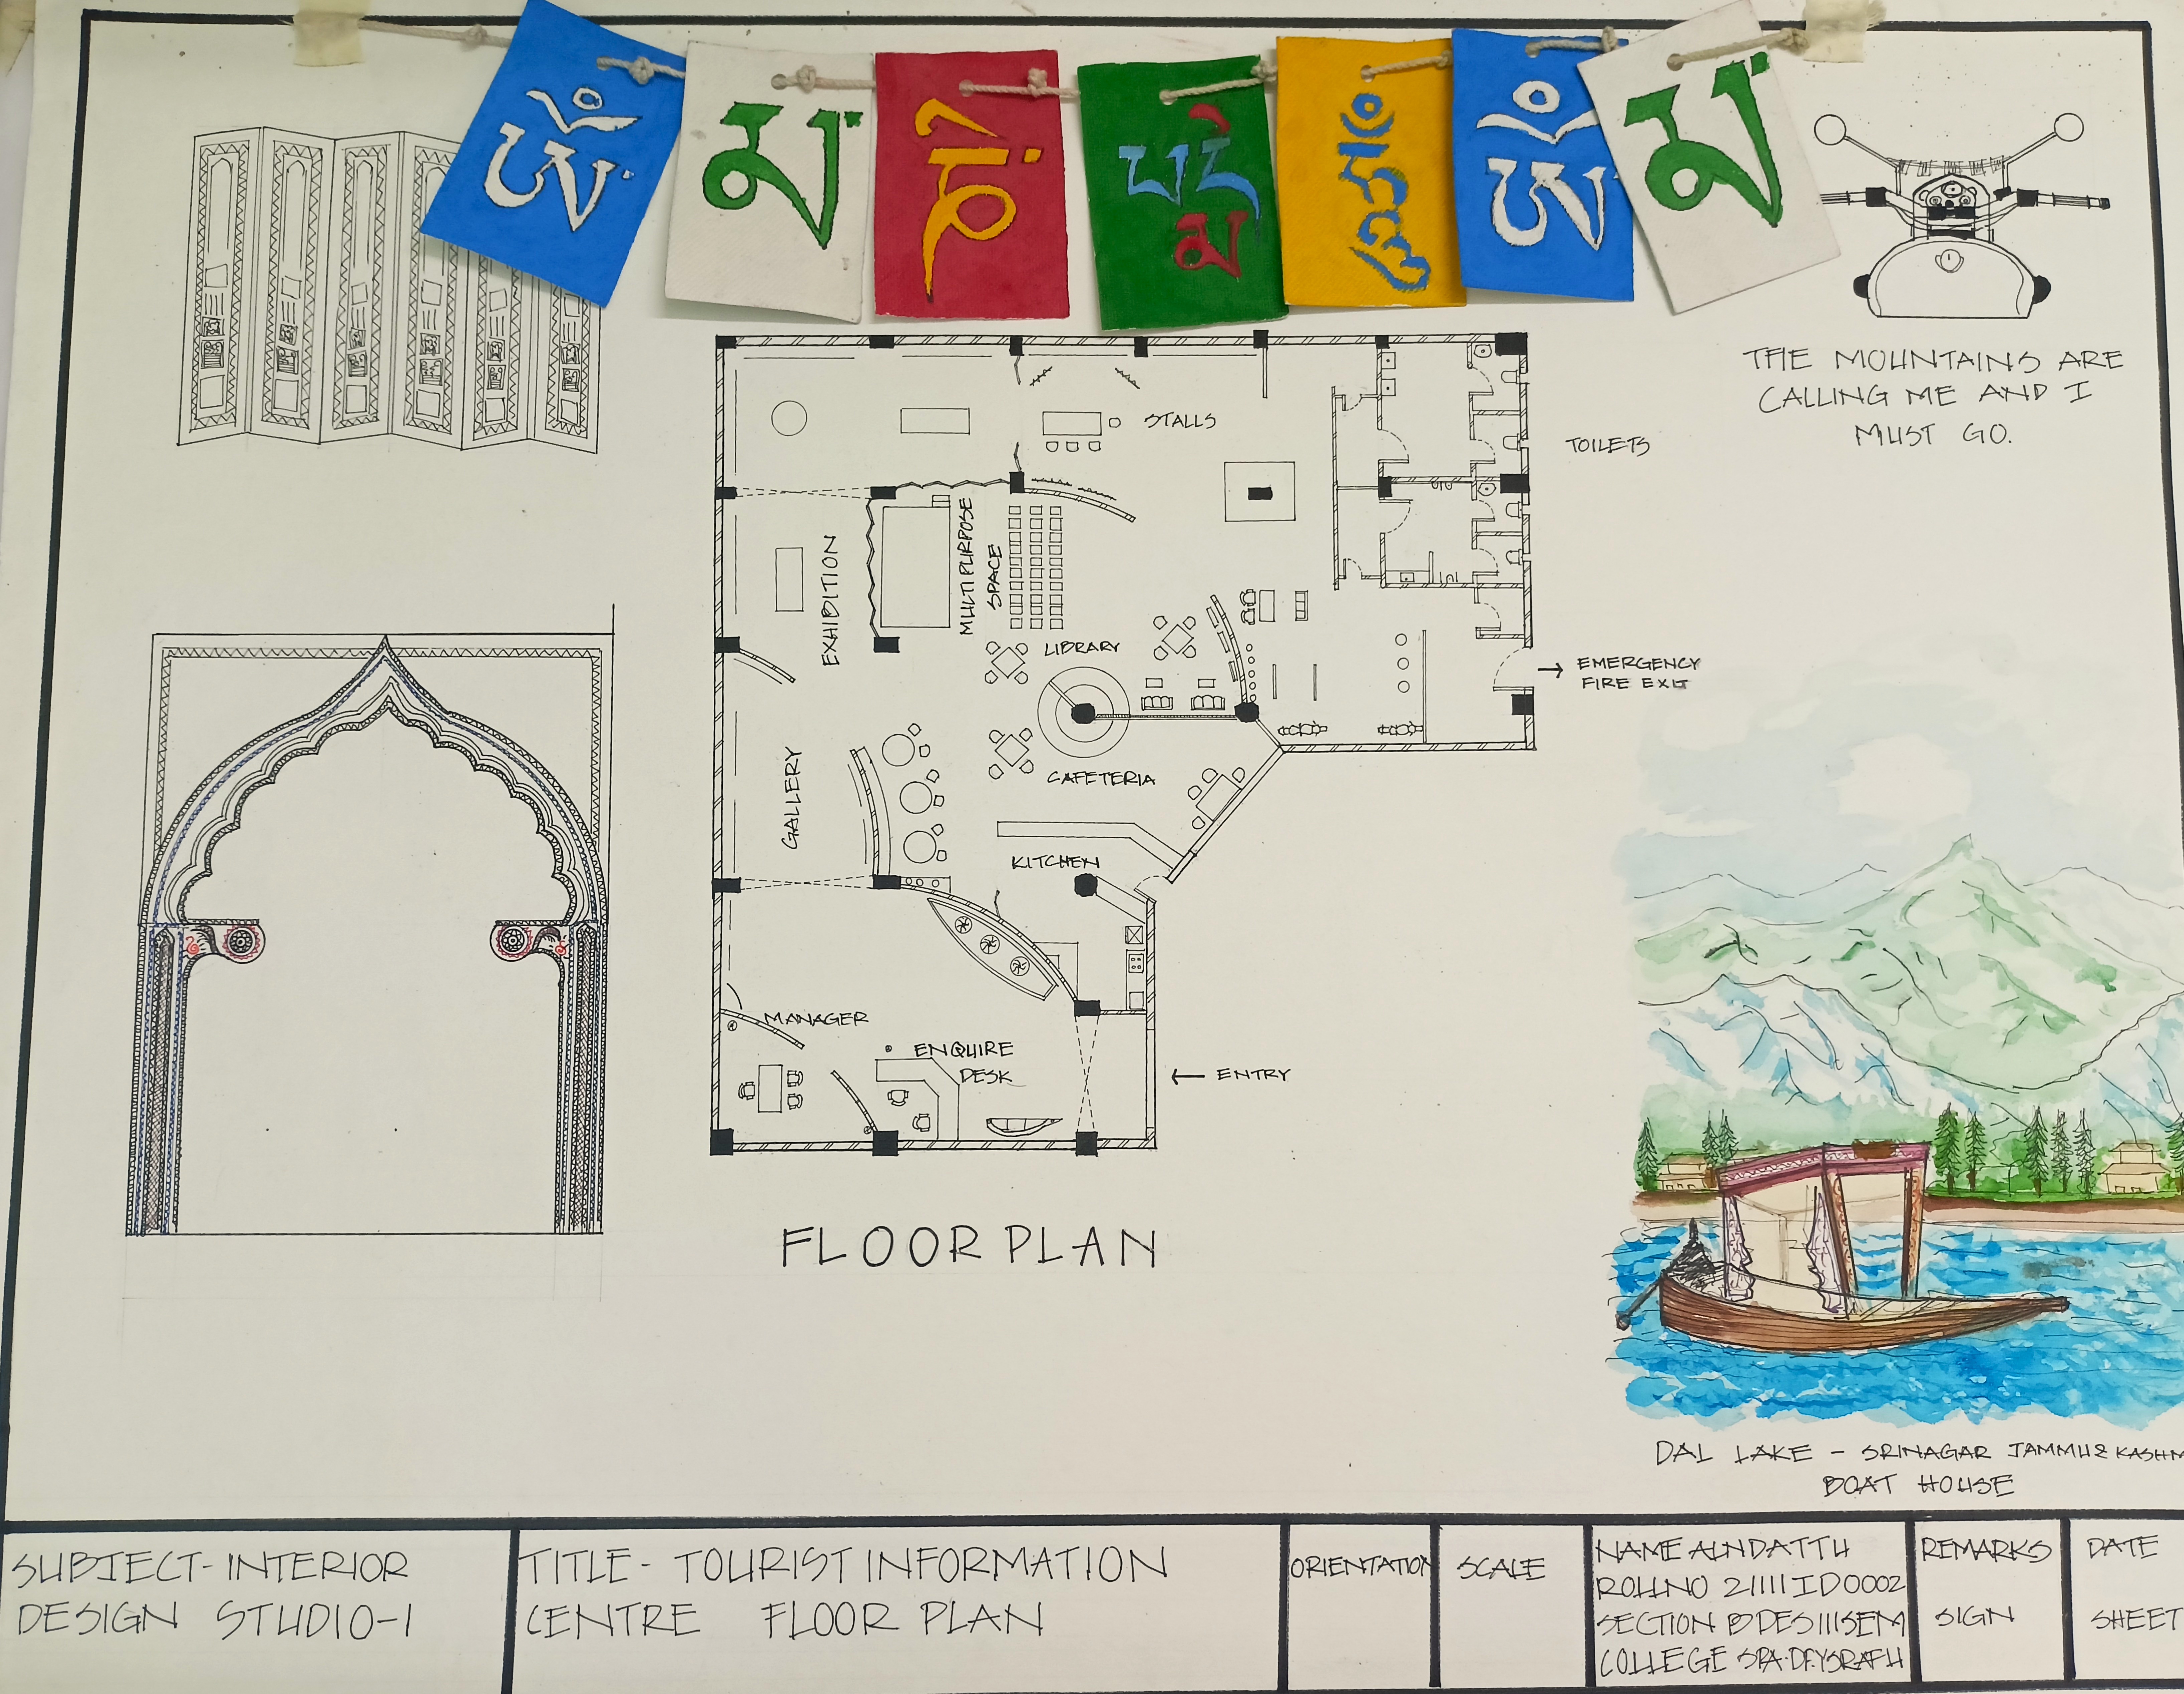 ཨོཾ
མ་
ཎི་
པདྨེ
ཧཱུྃ
ཨོཾ
མ་
THE MOUNTAINS ARE
CALLING ME AND I
MUST GO.
STALLS
TOILETS
EXHIBITION
MULTIPURPOSE
SPACE
LIBRARY
EMERGENCY
FIRE EXIT
GALLERY
CAFETERIA
KITCHEN
MANAGER
ENQUIRE
DESK
ENTRY
FLOOR PLAN
DAL LAKE - SRINAGAR JAMMU & KASHM
BOAT HOUSE
SUBJECT-INTERIOR
DESIGN STUDIO-1
TITLE- TOURIST INFORMATION
CENTRE FLOOR PLAN
ORIENTATION
SCALE
NAME
ROLLNO 21111ID0002
SECTION B DES III SEM
COLLEGE SPA.DR.YSRAFU
REMARKS
SIGN
DATE
SHEET